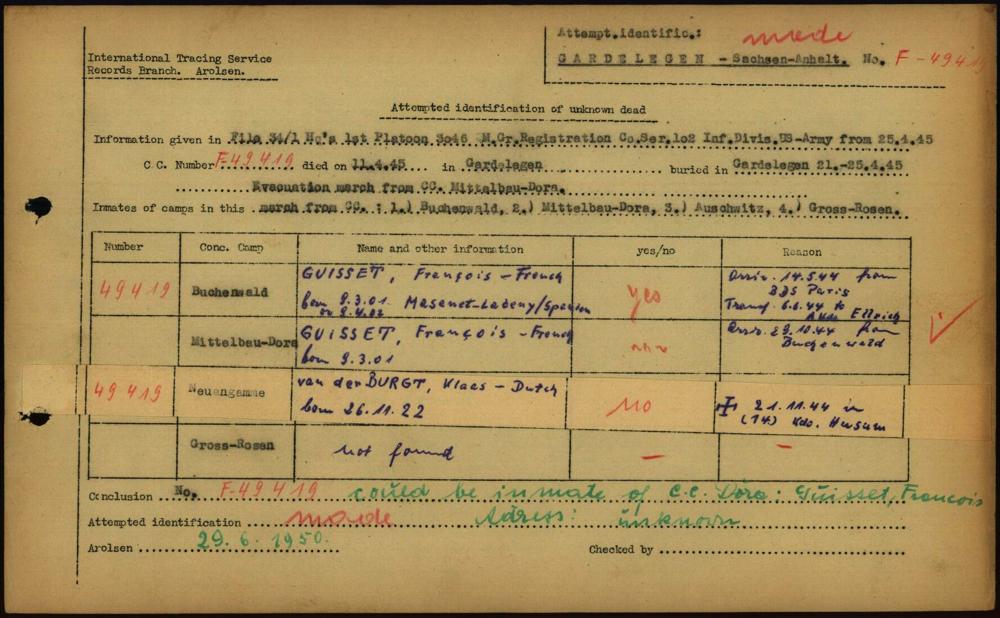 Attempt.identific.: made
International Tracing Service
Records Branch. Arolsen.
GARDELEGEN - Sachsen-Anhalt. No. F-49419
Attempted identification of unknown dead
Information given in File 34/1 Hq's 1st Platoon 3046 QM.Gr.Registration Co.Ser.102 Inf.Divis.US-Army from 25.4.45
C.C. Number F-49419 died on 11.4.45 in Gardelegen buried in Gardelegen 21.-25.4.45
Evacuation march from CC. Mittelbau-Dora.
Inmates of camps in this march from CC. : 1.) Buchenwald, 2.) Mittelbau-Dora, 3.) Auschwitz, 4.) Gross-Rosen.
Number Conc. Camp Name and other information yes/no Reason
49419 Buchenwald GUISSET, François - French yes Arriv. 14.5.44 from
BdS Paris
born 9.3.01 Masanet- Transf. 6.6.44 to
or 9.4.02 Kdo Ellrich
Mittelbau-Dora GUISSET, François - French Arriv. 29.10.44 from
born 9.3.01 Buchenwald
49419 Neuengamme van der BURGT, Klaas - Dutch no 21.11.44 in
born 26.11.22 Kdo. Husum
Gross-Rosen not found - -
Conclusion No. F-49419 could be inmate of C.C. Dora: Guisset, Francois
Attempted identification made Adress: unknown
Arolsen 29.6.1950. Checked by